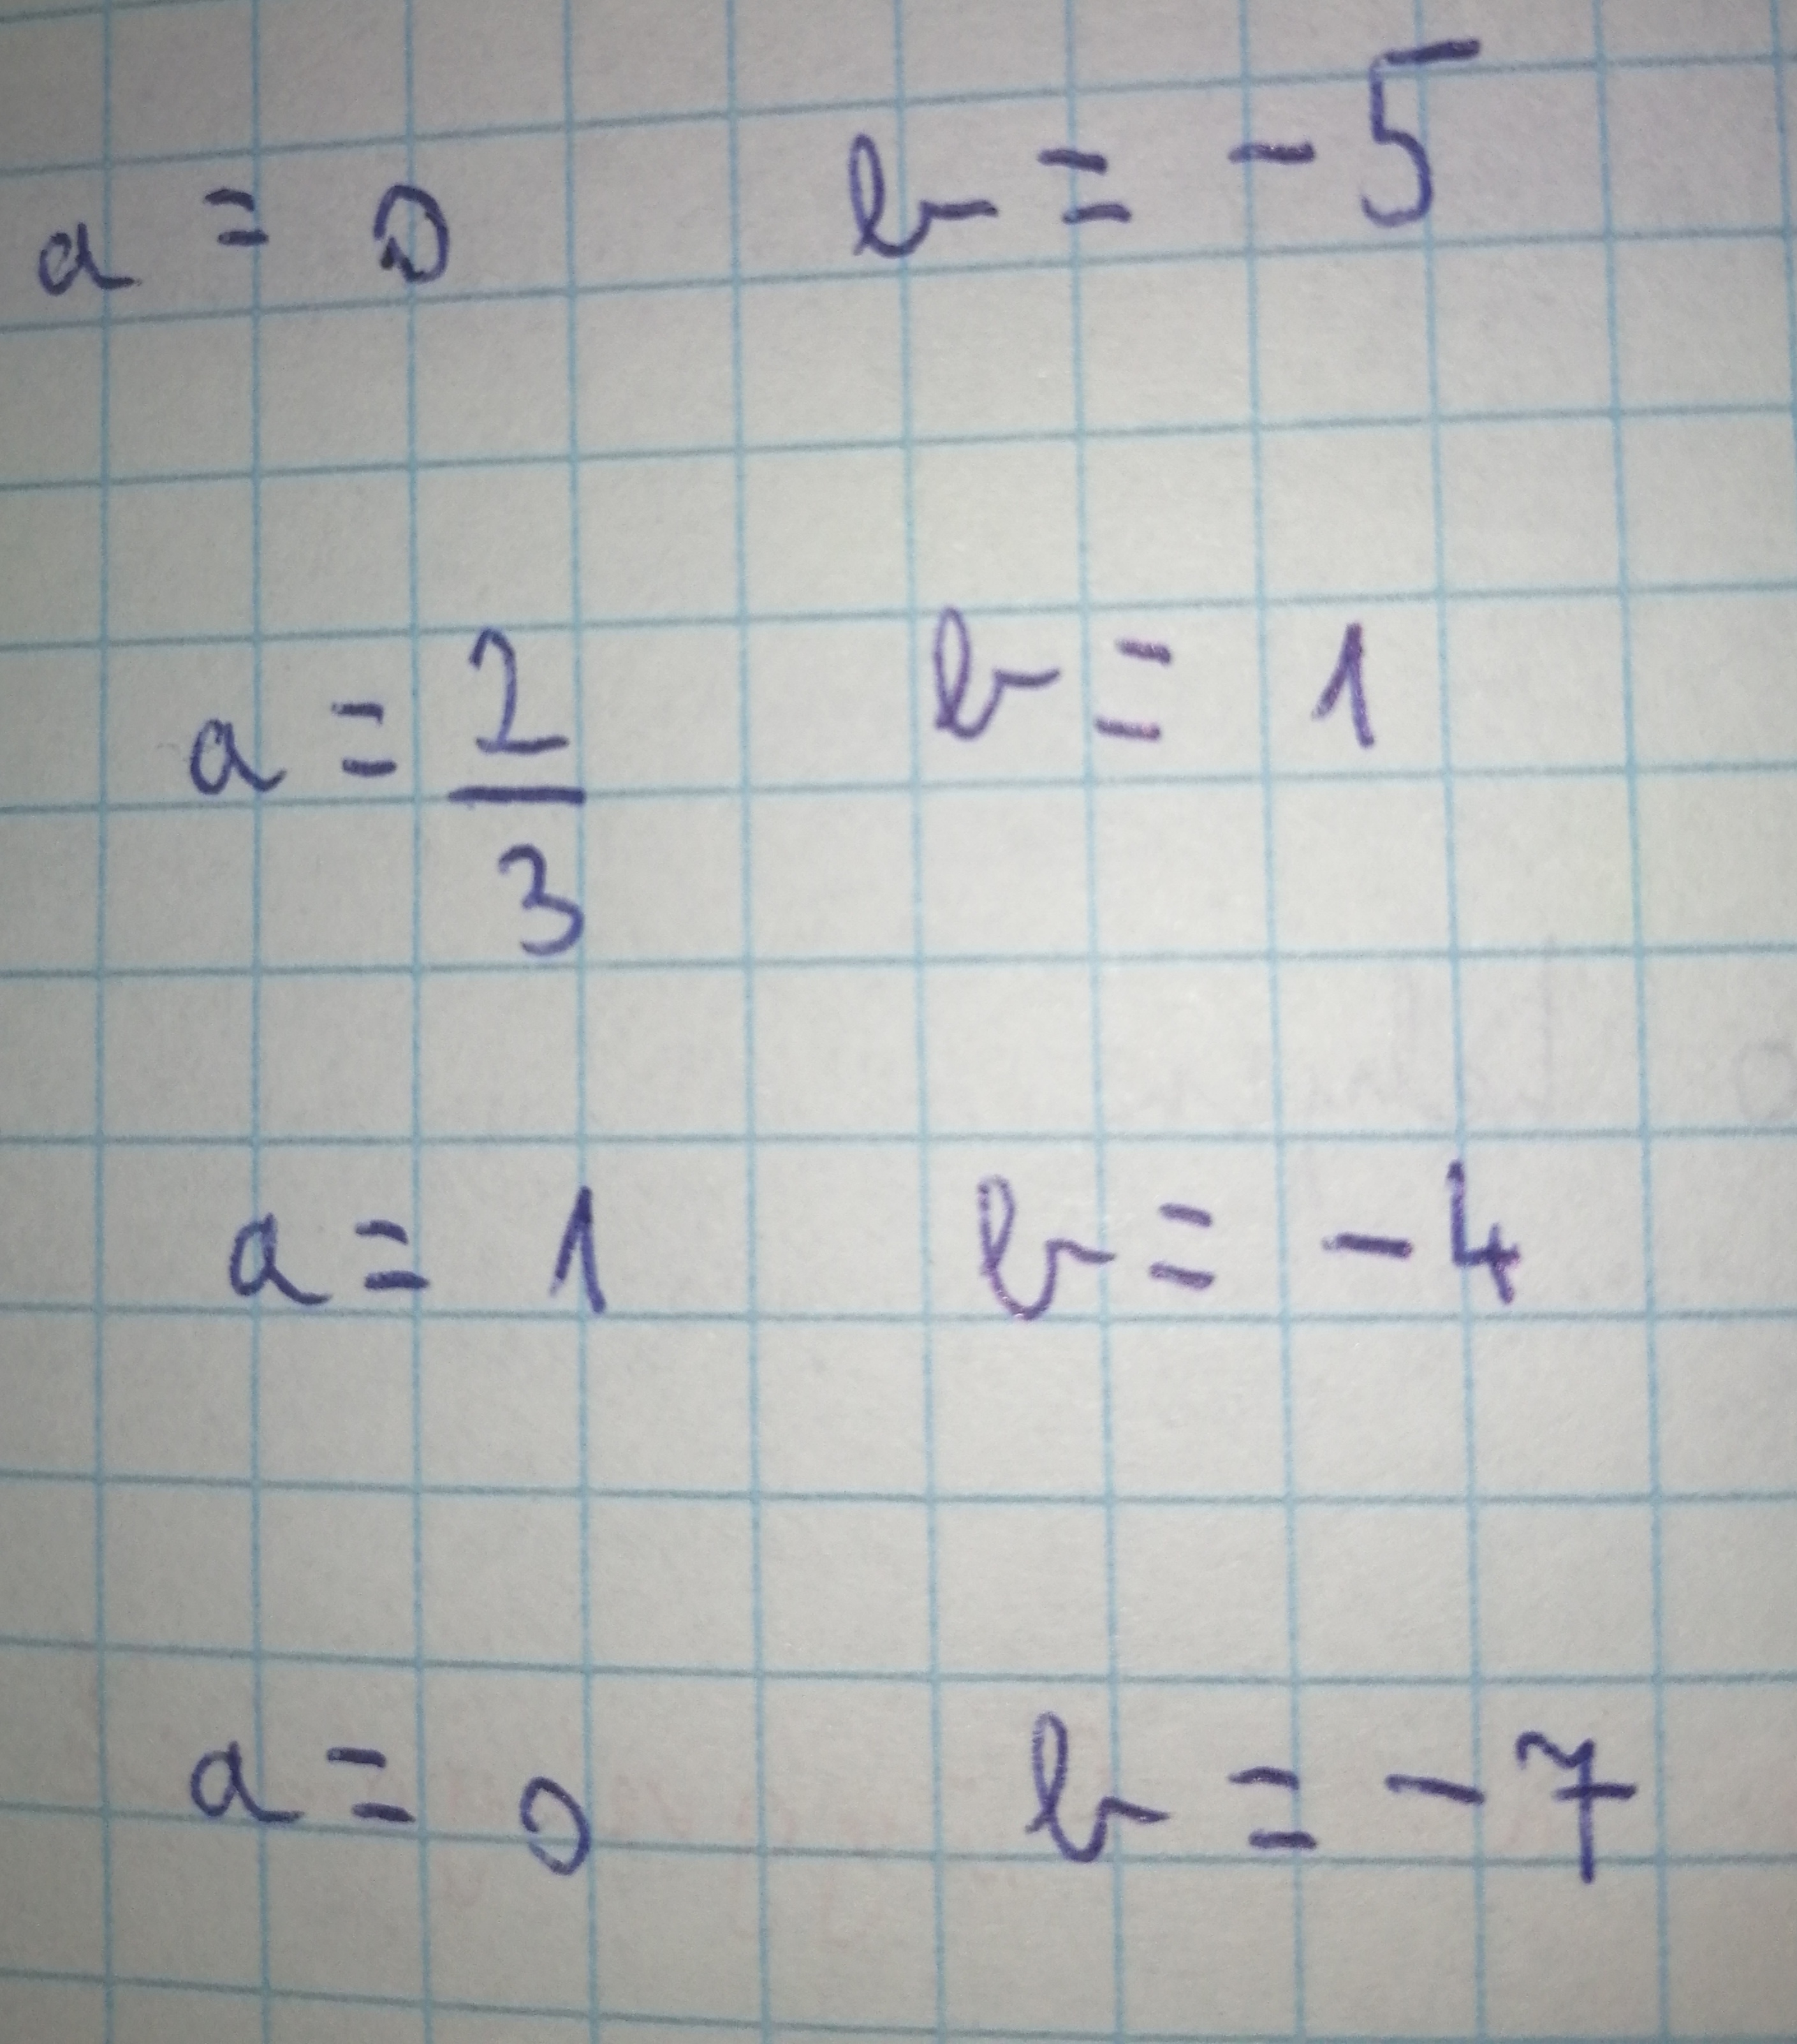 a = 0 b = -5
a = 2/3 b = 1
a = 1 b = -4
a = 0 b = -7